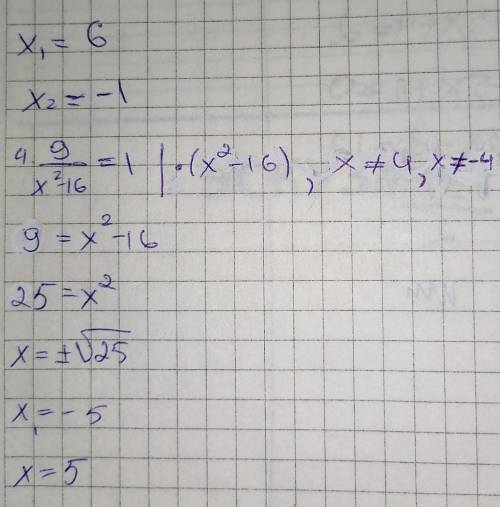 x₁ = 6
x₂ = -1
4. 9/(x²-16) = 1 | · (x²-16), x ≠ 4, x ≠ -4
9 = x² - 16
25 = x²
x = ±√25
x₁ = -5
x = 5